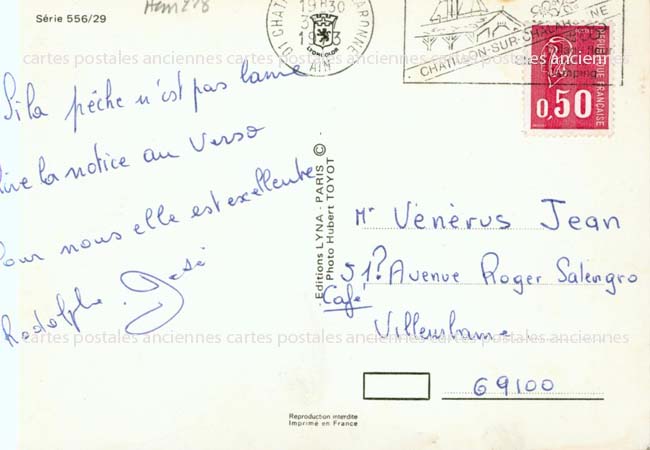 Série 556/29
19H30
01 CHAT
ARONNE
AIN
CHATILLON-SUR-CHALARONNE
camping
REPUBLIQUE FRANÇAISE
0,50
cartes postales anciennes cartes postales anciennes cartes postales anciennes
Si la pêche n'est pas bonne
lire la notice au Verso
Pour nous elle est excellente
Rodolphe José
Editions LYNA - PARIS ©
Photo Hubert TOYOT
Mr Vénérus Jean
51? Avenue Roger Salengro
Café
Villeurbanne
69100
cartes postales anciennes cartes postales anciennes cartes postales anciennes
Reproduction interdite
Imprimé en France